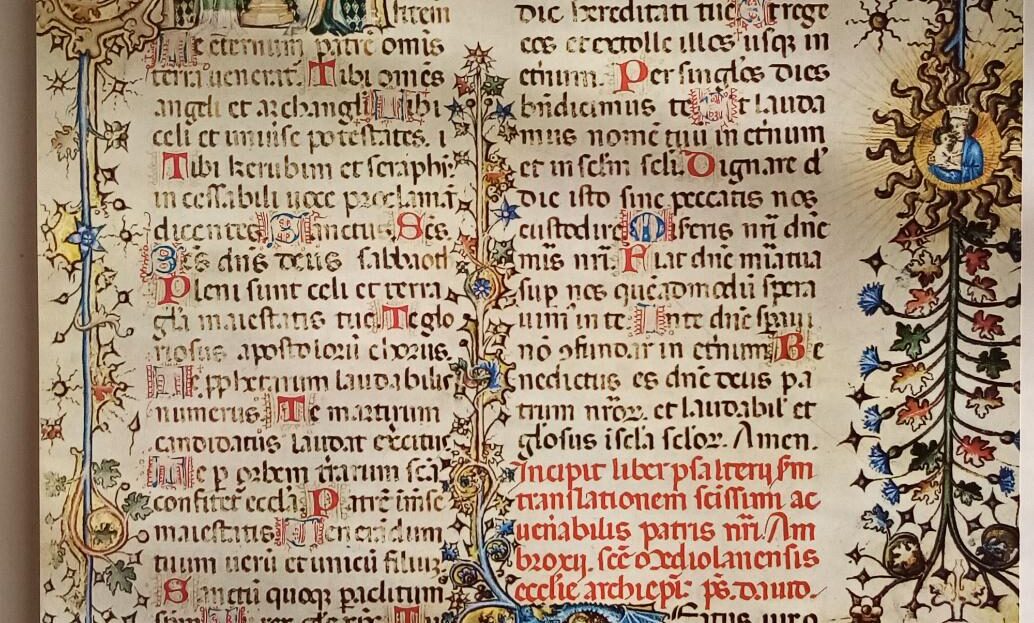 litem
Te eternum patrē omīs
terra ueneratͬ. Tibi omēs
angeli et archangeli. Tibi
celi et uniuīse potestates. i
Tibi kerubim et seraphī
incessabili uoce proclamāt
dicentes Sanctus. Scs.
Scs dns deus sabbaoth
Pleni sunt celi et terra
glā maiestatis tue. Te glo
riosus apostolorū chorus.
Te pphetarum laudabilis
numerus. Te martirum
candidatus laudat exercitus
Te p orbem trarum scā
confitetͬ ecclā. Patrē īmēse
maiestatis. Venerādum
tuum uerū et unicū filiuz.
Sanctū quoqꝫ paclitum
spm. Tu rex glorie xp̄e. Tu
die hereditati tue. Et rege
eos et extolle illos usqꝫ in
etnum. Per singlos dies
bndicimus te. Et lauda
mus nomē tuū in etnum
et in sclm scli. Dignare dʼ
die isto sine peccatis nos
custodire. Miseris nrī dnē
mis nrī. Fiat dnē mīa tua
sup nos queadmodū spera
uim in te. In te dnē speraui
nō ꝯfundar in etnum. Be
nedictus es dnē deus pa
trum nror. et laudabilʼ et
glosus ī scla sclor. Amen.
Incipit liber psalterij sm
translationem scīssimi ac
uenabilis patris nrī. Am
broxij. scē mediolanensis
ecclīe archiepī. ps. dauid.
Eatus uiro